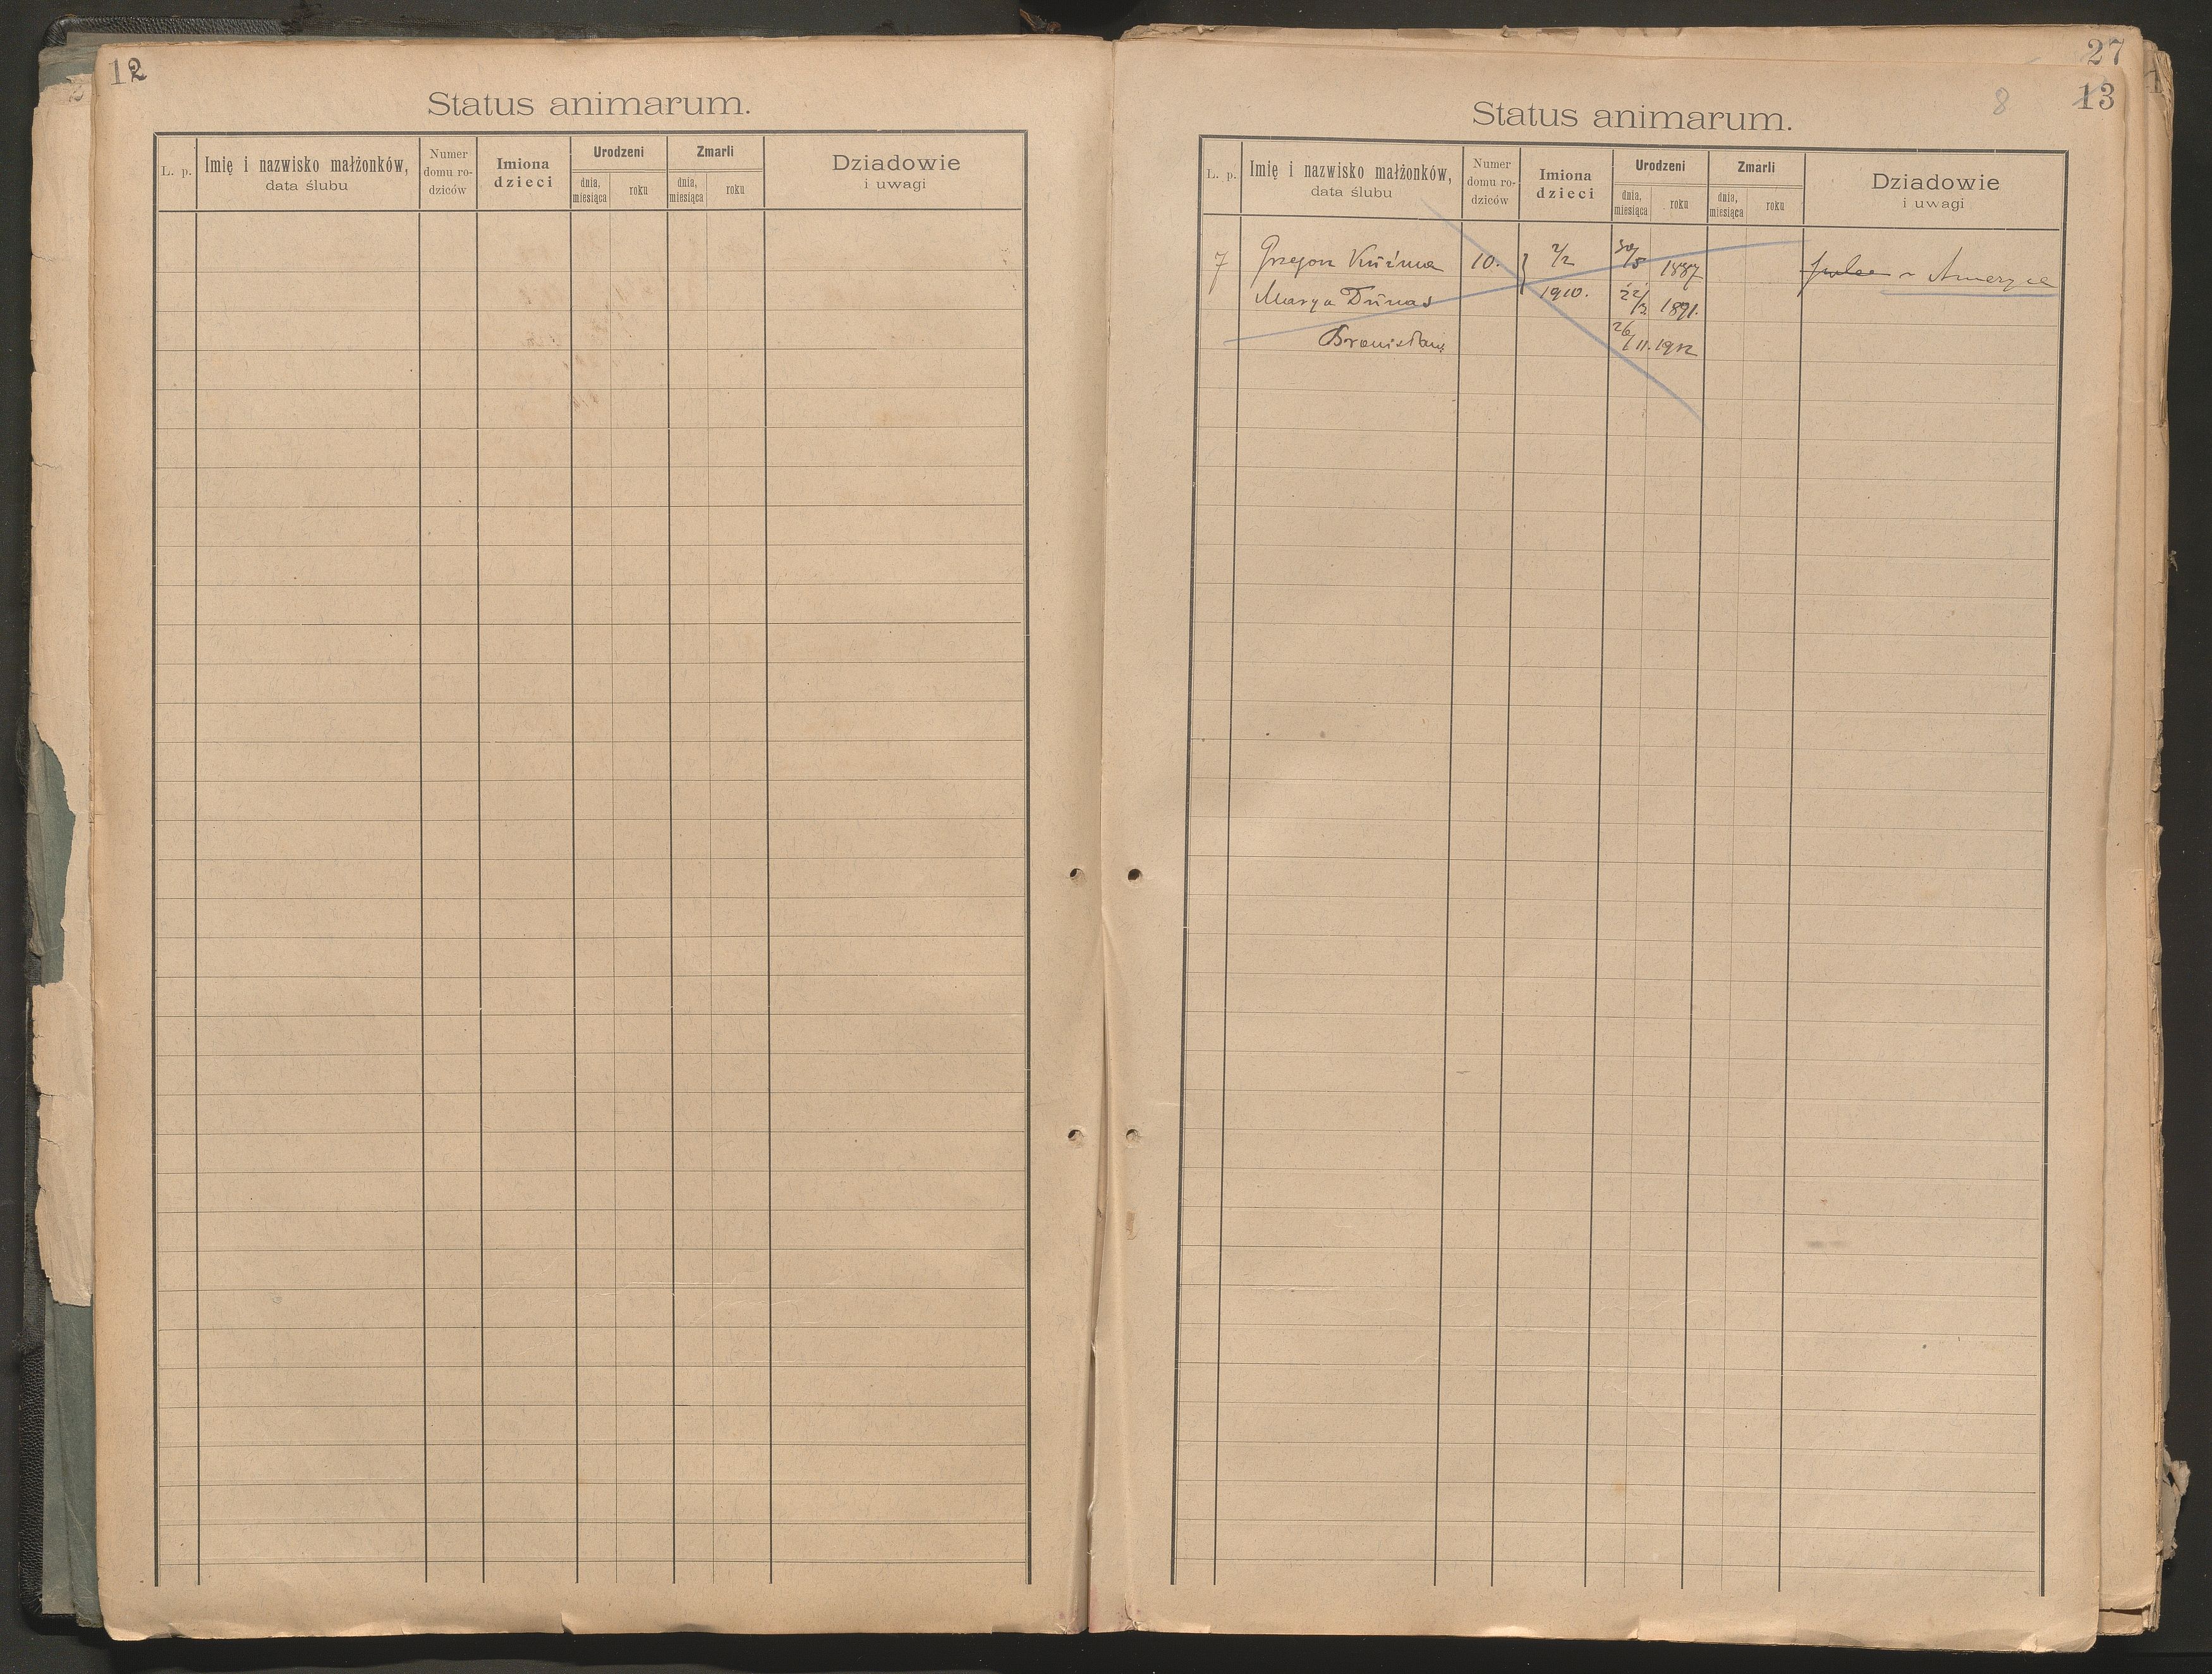 12
Status animarum.
L. p. Imię i nazwisko małżonków, data ślubu Numer domu rodziców Imiona dzieci Urodzeni dnia, miesiąca roku Zmarli dnia, miesiąca roku Dziadowie i uwagi
27
8 13
Status animarum.
L. p. Imię i nazwisko małżonków, data ślubu Numer domu rodziców Imiona dzieci Urodzeni dnia, miesiąca roku Zmarli dnia, miesiąca roku Dziadowie i uwagi
7 Grzegorz Kuźma 10. 2/2 30/5 1887 w Ameryce
Marya Dunas 1910. 22/3 1891.
Bronisław 26/11. 1912